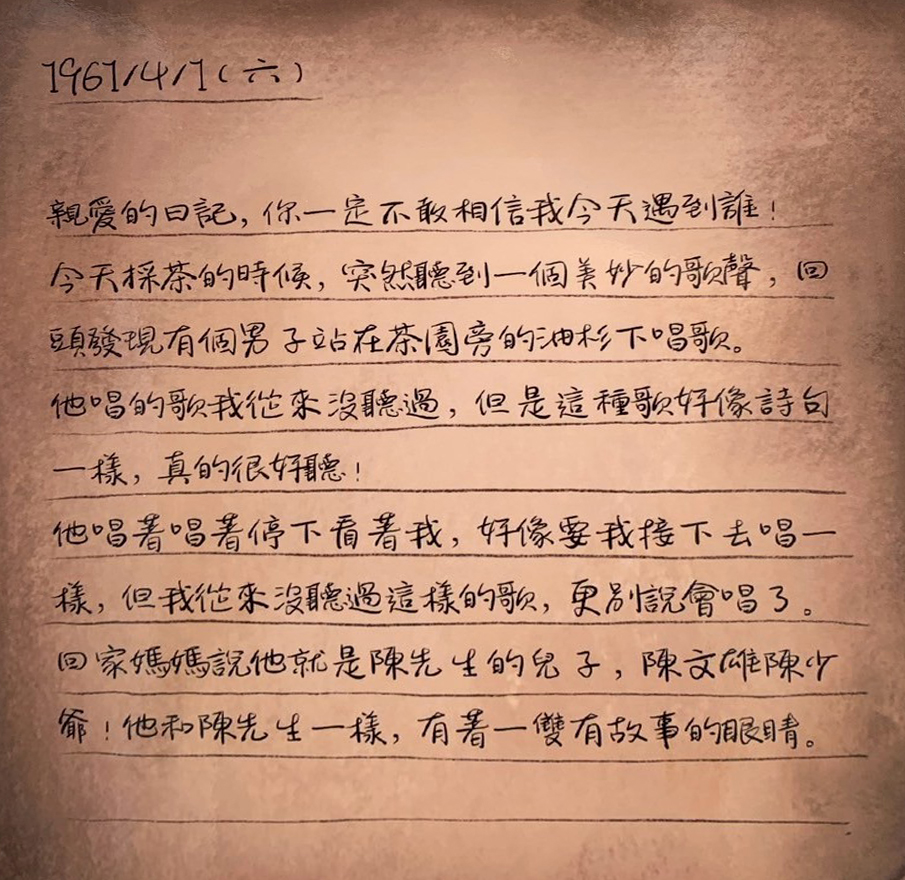 1967/4/1(六)
親愛的日記,你一定不敢相信我今天遇到誰!
今天採茶的時候,突然聽到一個美妙的歌聲,回
頭發現有個男子站在茶園旁的油杉下唱歌。
他唱的歌我從來沒聽過,但是這種歌好像詩句
一樣,真的很好聽!
他唱著唱著停下看著我,好像要我接下去唱一
樣,但我從來沒聽過這樣的歌,更別說會唱了。
回家媽媽說他就是陳先生的兒子,陳文雄陳少
爺!他和陳先生一樣,有著一雙有故事的眼睛。